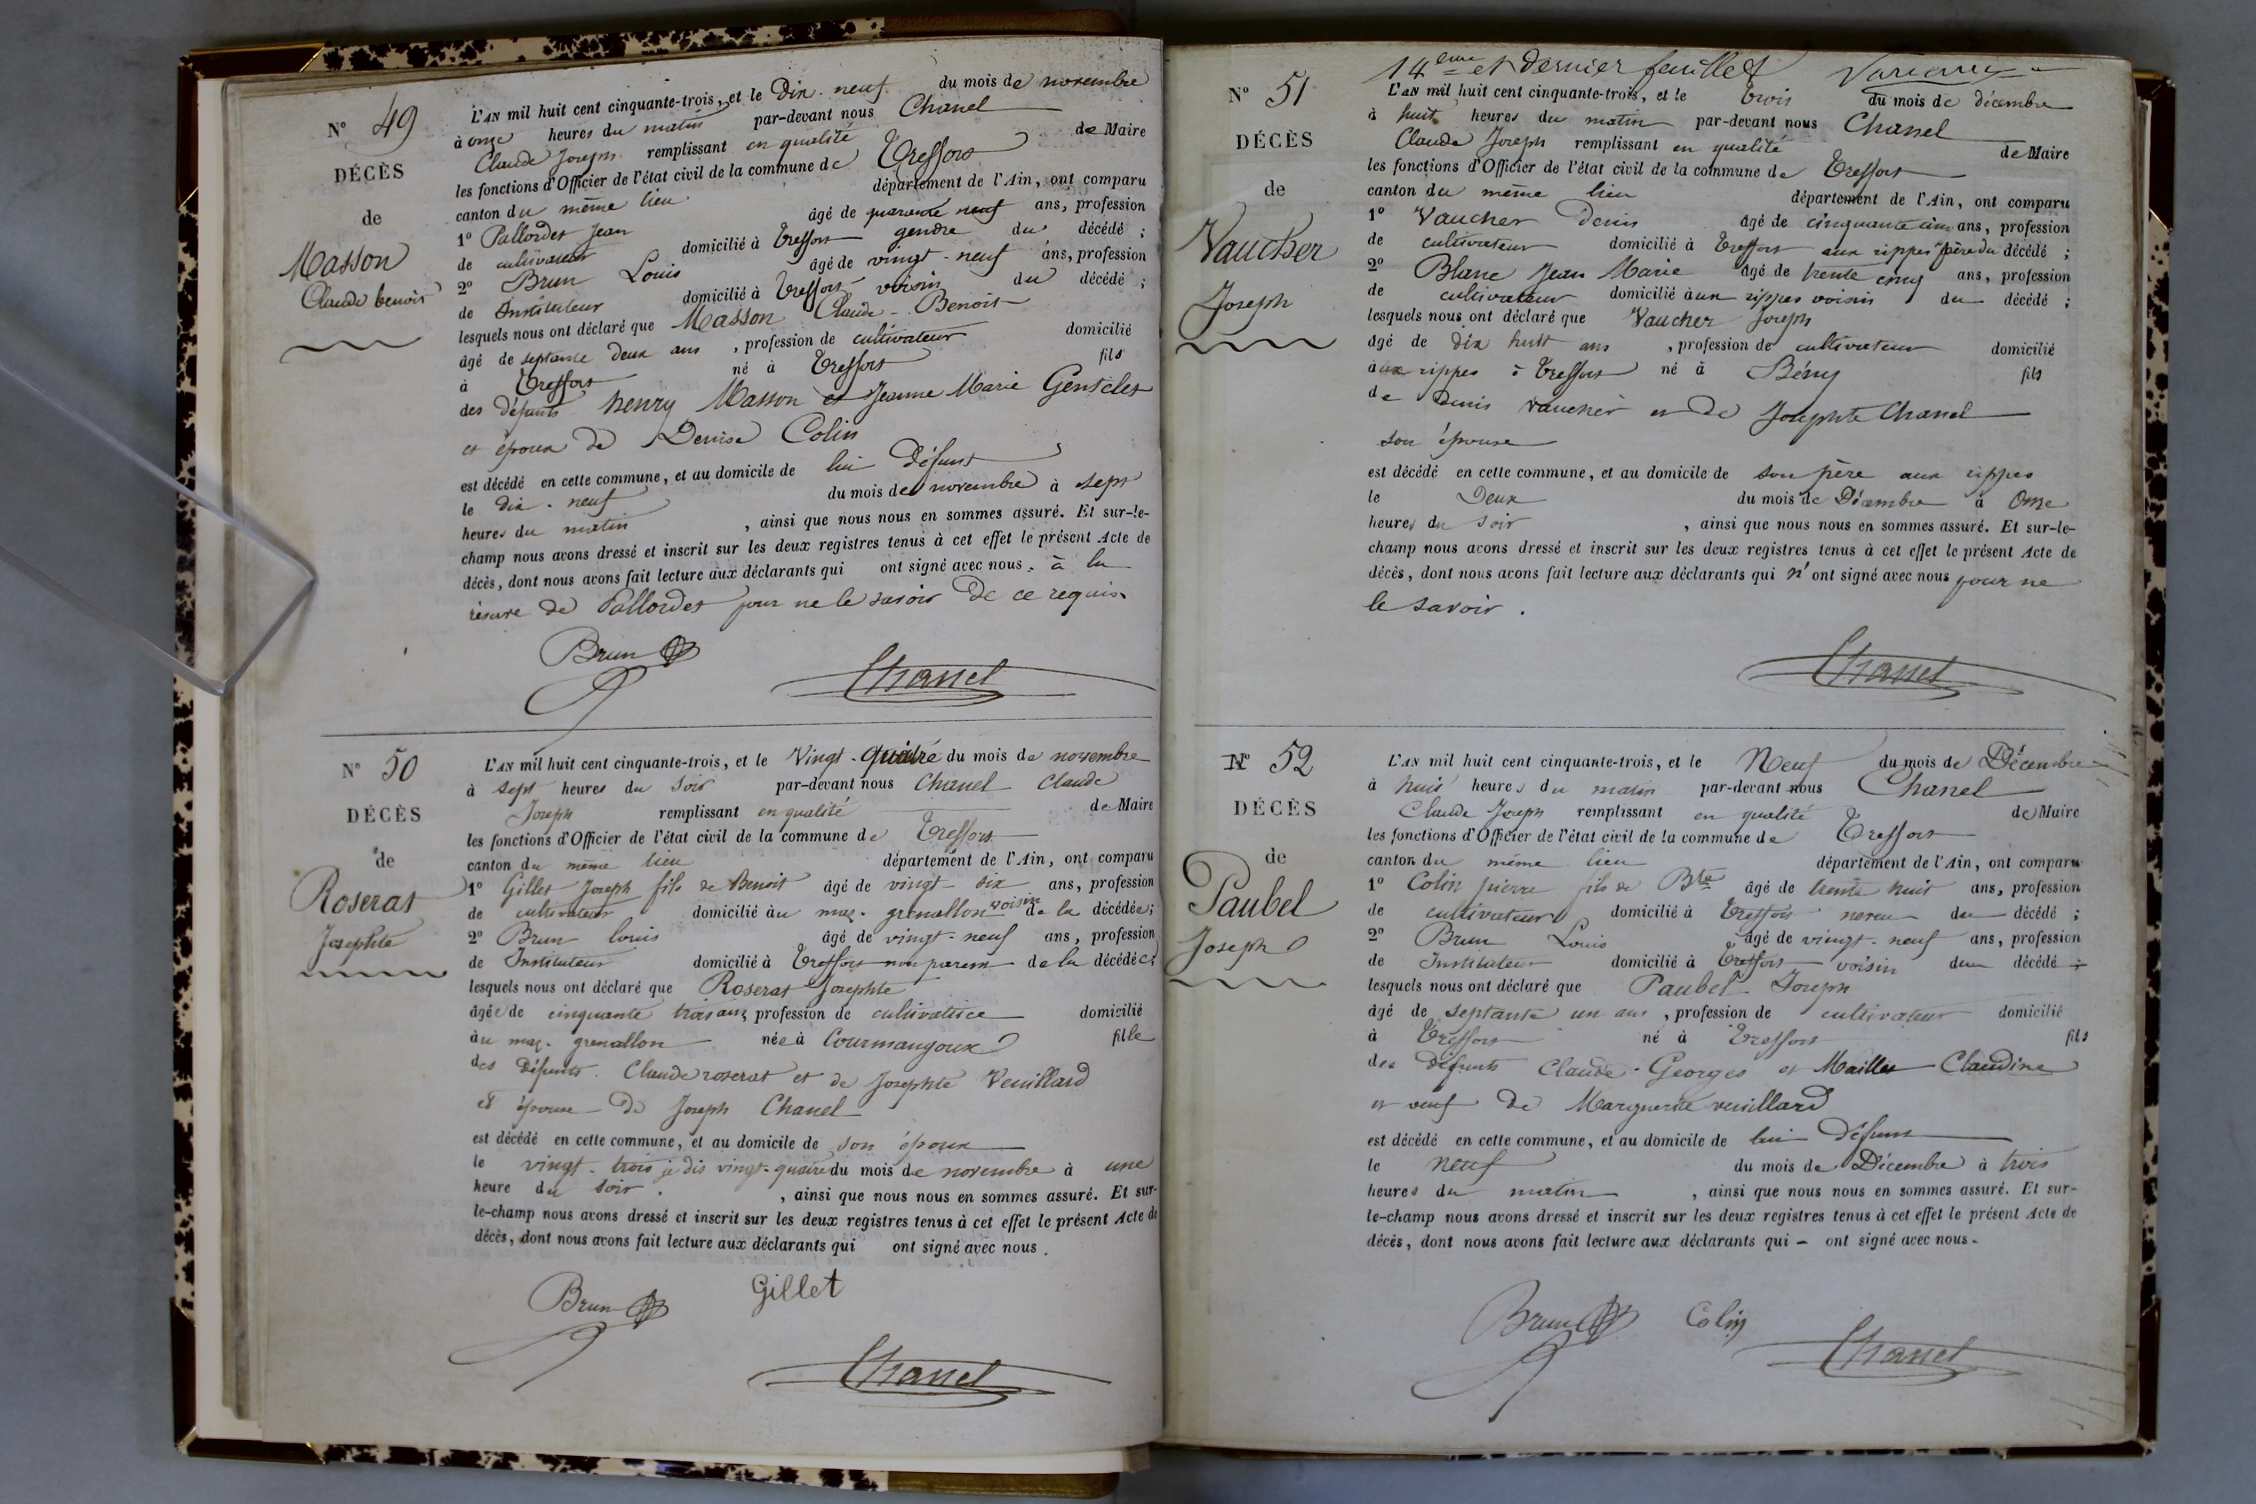 N° 49
DÉCÈS
de
Masson
Claude benoit
L'AN mil huit cent cinquante-trois, et le Dix-neuf du mois de novembre
à onze heures du matin par-devant nous Chanel
Claude Joseph remplissant en qualité de Maire
les fonctions d'Officier de l'état civil de la commune de Treffort
canton du même lieu département de l'Ain, ont comparu
1° Pallordet Jean âgé de quarante neuf ans, profession
de cultivateur domicilié à Treffort gendre du décédé ;
2° Brun Louis âgé de vingt-neuf ans, profession
de Instituteur domicilié à Treffort voisin du décédé ;
lesquels nous ont déclaré que Masson Claude-Benoit
âgé de septante deux ans, profession de cultivateur domicilié
à Treffort né à Treffort fils
des défunts henry Masson et Jeanne Marie Gentelet
et époux de Denise Colin
est décédé en cette commune, et au domicile de lui défunt
le dix-neuf du mois de novembre à sept
heures du matin, ainsi que nous nous en sommes assuré. Et sur-le-
champ nous avons dressé et inscrit sur les deux registres tenus à cet effet le présent Acte de
décès, dont nous avons fait lecture aux déclarants qui ont signé avec nous, à la
réserve de Pallordet pour ne le savoir de ce requis.
Brun
Chanel
N° 50
DÉCÈS
de
Roserat
Josephte
L'AN mil huit cent cinquante-trois, et le Vingt-quatre du mois de novembre
à sept heures du soir par-devant nous Chanel Claude
Joseph remplissant en qualité de Maire
les fonctions d'Officier de l'état civil de la commune de Treffort
canton du même lieu département de l'Ain, ont comparu
1° Gillet Joseph fils de Benoit âgé de vingt-six ans, profession
de cultivateur domicilié au maz-grenallon voisin de la décédée ;
2° Brun louis âgé de vingt-neuf ans, profession
de Instituteur domicilié à Treffort non parent de la décédée ;
lesquels nous ont déclaré que Roserat Josephte
âgée de cinquante trois ans, profession de cultivatrice domicilié
au maz-grenallon née à Courmangoux fille
des défunts Claude roserat et de Josephte Veuillard
et épouse de Joseph Chanel
est décédé en cette commune, et au domicile de son époux
le vingt-trois je dis vingt-quatre du mois de novembre à une
heure du soir, ainsi que nous nous en sommes assuré. Et sur-
le-champ nous avons dressé et inscrit sur les deux registres tenus à cet effet le présent Acte de
décès, dont nous avons fait lecture aux déclarants qui ont signé avec nous.
Brun Gillet
Chanel
14eme et dernier feuillet
N° 51
DÉCÈS
de
Vaucher
Joseph
L'AN mil huit cent cinquante-trois, et le trois du mois de décembre
à huit heures du matin par-devant nous Chanel
Claude Joseph remplissant en qualité de Maire
les fonctions d'Officier de l'état civil de la commune de Treffort
canton du même lieu département de l'Ain, ont comparu
1° Vaucher Denis âgé de cinquante cinq ans, profession
de cultivateur domicilié à Treffort aux rippes père du décédé ;
2° Blanc Jean Marie âgé de trente cinq ans, profession
de cultivateur domicilié aux rippes voisin du décédé ;
lesquels nous ont déclaré que Vaucher Joseph
âgé de dix huit ans, profession de cultivateur domicilié
aux rippes à Treffort né à Bény fils
de Denis Vaucher et de Josephte Chanel
son épouse
est décédé en cette commune, et au domicile de son père aux rippes
le Deux du mois de Décembre à Onze
heures du soir, ainsi que nous nous en sommes assuré. Et sur-le-
champ nous avons dressé et inscrit sur les deux registres tenus à cet effet le présent Acte de
décès, dont nous avons fait lecture aux déclarants qui n'ont signé avec nous pour ne
le savoir.
Chanel
N° 52
DÉCÈS
de
Paubel
Joseph
L'AN mil huit cent cinquante-trois, et le Neuf du mois de Décembre
à huit heures du matin par-devant nous Chanel
Claude Joseph remplissant en qualité de Maire
les fonctions d'Officier de l'état civil de la commune de Treffort
canton du même lieu département de l'Ain, ont comparu
1° Colin pierre fils de Bte âgé de trente huit ans, profession
de cultivateur domicilié à Treffort neveu du décédé ;
2° Brun Louis âgé de vingt-neuf ans, profession
de Instituteur domicilié à Treffort voisin du décédé ;
lesquels nous ont déclaré que Paubel Joseph
âgé de septante un ans, profession de cultivateur domicilié
à Treffort né à Treffort fils
des défunts Claude-Georges et Maillet Claudine
et veuf de Marguerite veuillard
est décédé en cette commune, et au domicile de lui défunt
le neuf du mois de Décembre à trois
heures du matin, ainsi que nous nous en sommes assuré. Et sur-
le-champ nous avons dressé et inscrit sur les deux registres tenus à cet effet le présent Acte de
décès, dont nous avons fait lecture aux déclarants qui - ont signé avec nous.
Brun Colin
Chanel